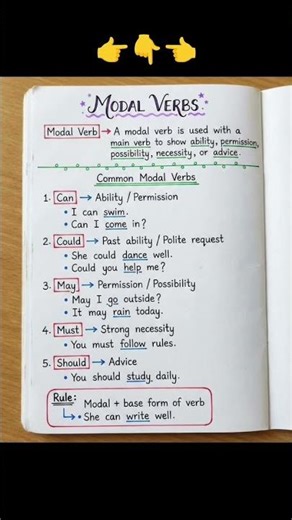 MODAL VERBS
Modal Verb → A modal verb is used with a
main verb to show ability, permission,
possibility, necessity, or advice.
Common Modal Verbs
1. Can → Ability / Permission
• I can swim.
• Can I come in?
2. Could → Past ability / Polite request
• She could dance well.
• Could you help me?
3. May → Permission / Possibility
• May I go outside?
• It may rain today.
4. Must → Strong necessity
• You must follow rules.
5. Should → Advice
• You should study daily.
Rule: Modal + base form of verb
↳ • She can write well.